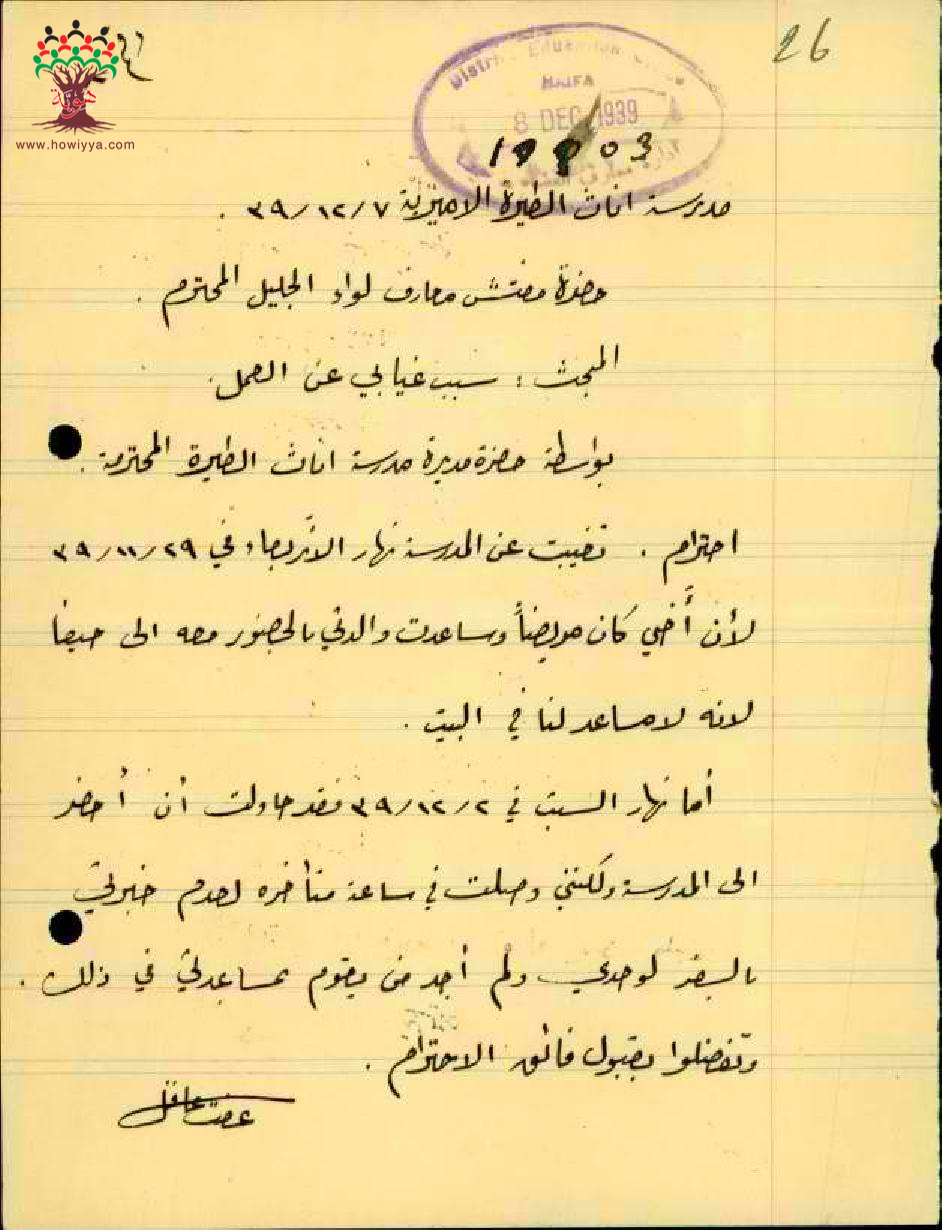 26
هوية
www.howiyya.com
District Education Office
HAIFA
8 DEC 1939
مدرسة اناث الطيرة الاميرية ٣٩/١٢/٧ .
حضرة مفتش معارف لواء الجليل المحترم .
المبحث : سبب غيابي عن العمل .
بواسطة حضرة مديرة مدرسة اناث الطيرة المحترمة .
احترام . تغيبت عن المدرسة نهار الأربعاء في ٣٩/١١/٢٩
لأن أخي كان مريضاً وساعدت والدتي بالحضور معه الى حيفا
لانه لا مساعد لنا في البيت .
أما نهار السبت في ٣٩/١٢/٢ فقد حاولت أن أحضر
الى المدرسة ولكنني وصلت في ساعة متأخره لعدم خبرتي
بالسفر لوحدي ولم أجد من يقوم بمساعدتي في ذلك .
وتفضلوا بقبول فائق الاحترام .